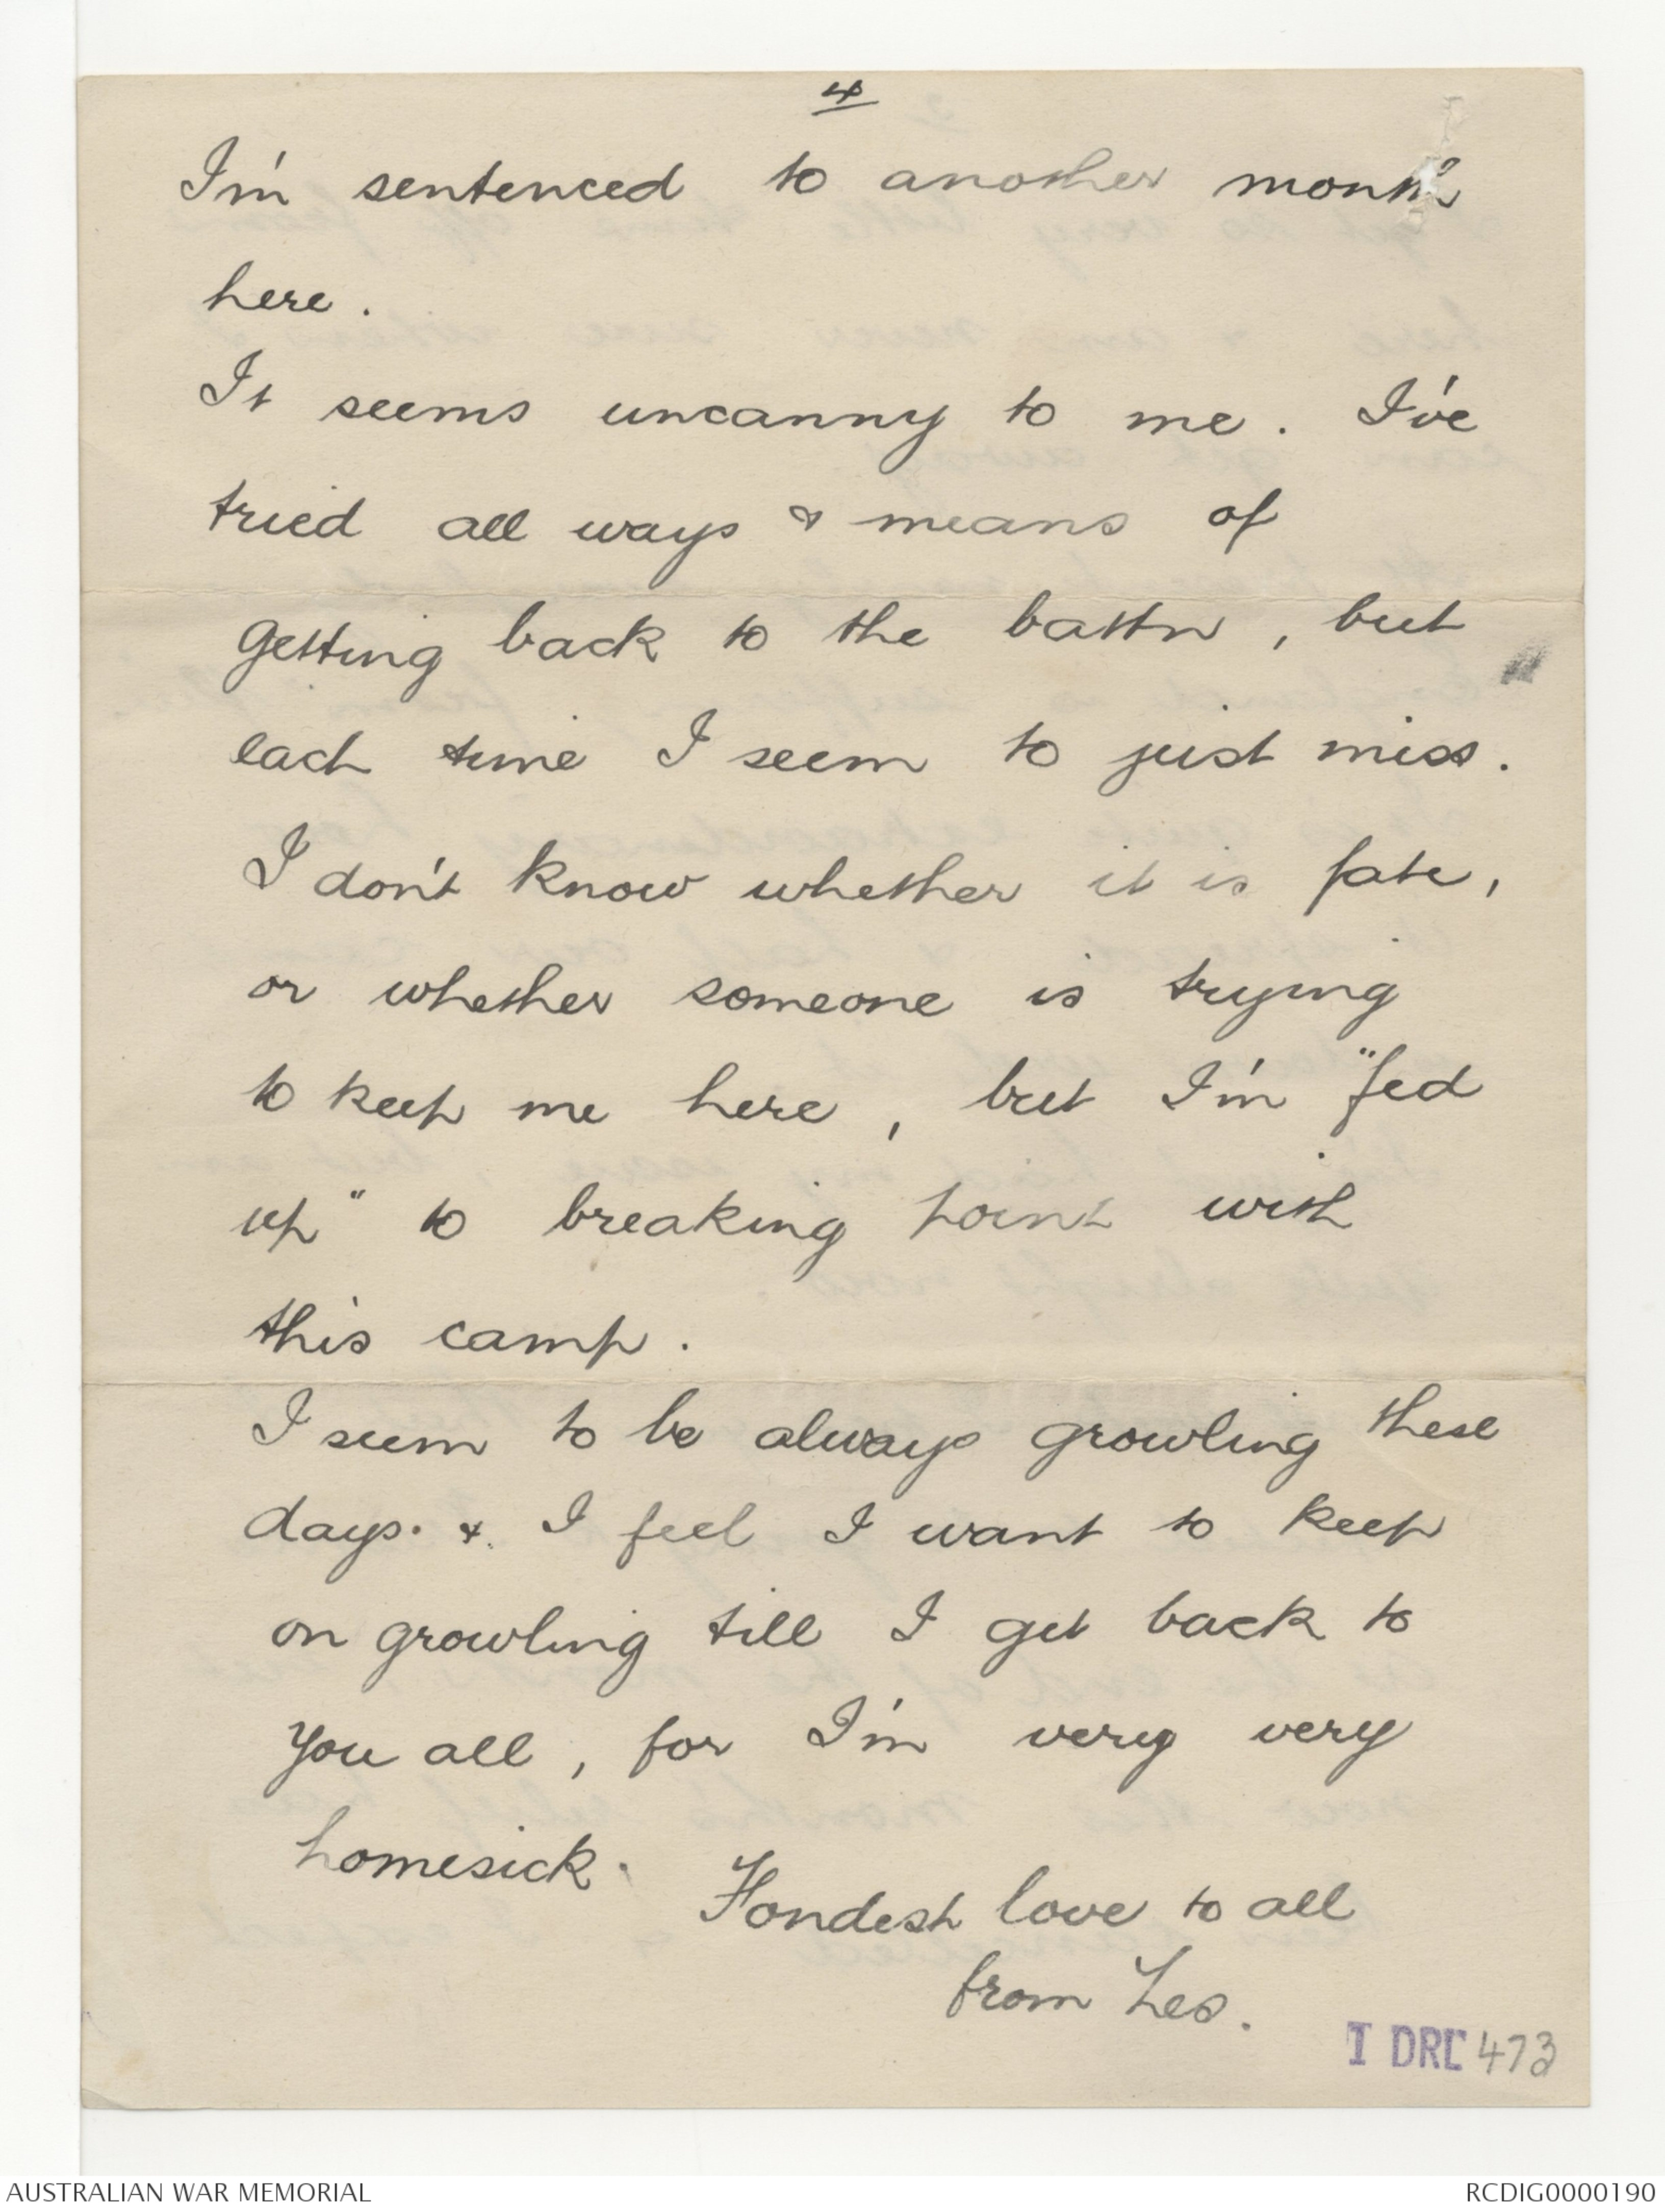 4
I'm sentenced to another month
here.
It seems uncanny to me. I've
tried all ways & means of
getting back to the battn, but
each time I seem to just miss.
I don't know whether it is fate,
or whether someone is trying
to keep me here, but I'm "fed
up" to breaking point with
this camp.
I seem to be always growling these
days. & I feel I want to keep
on growling till I get back to
you all, for I'm very very
homesick.
Fondest love to all
from Les.
I DRL 473
AUSTRALIAN WAR MEMORIAL
RCDIG0000190